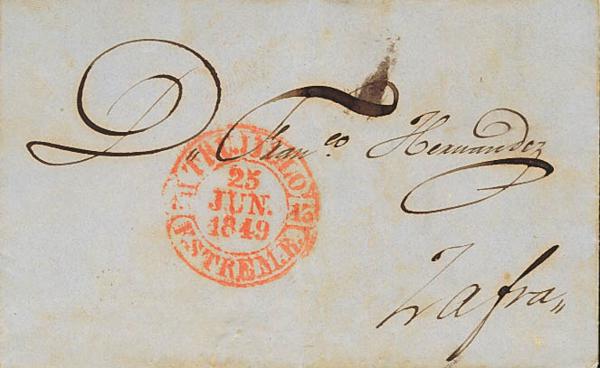 Dⁿ Fran.co Hernandez
TRUJILLO
25
JUN.
1849
12
ESTREM.B.
Zafra〃